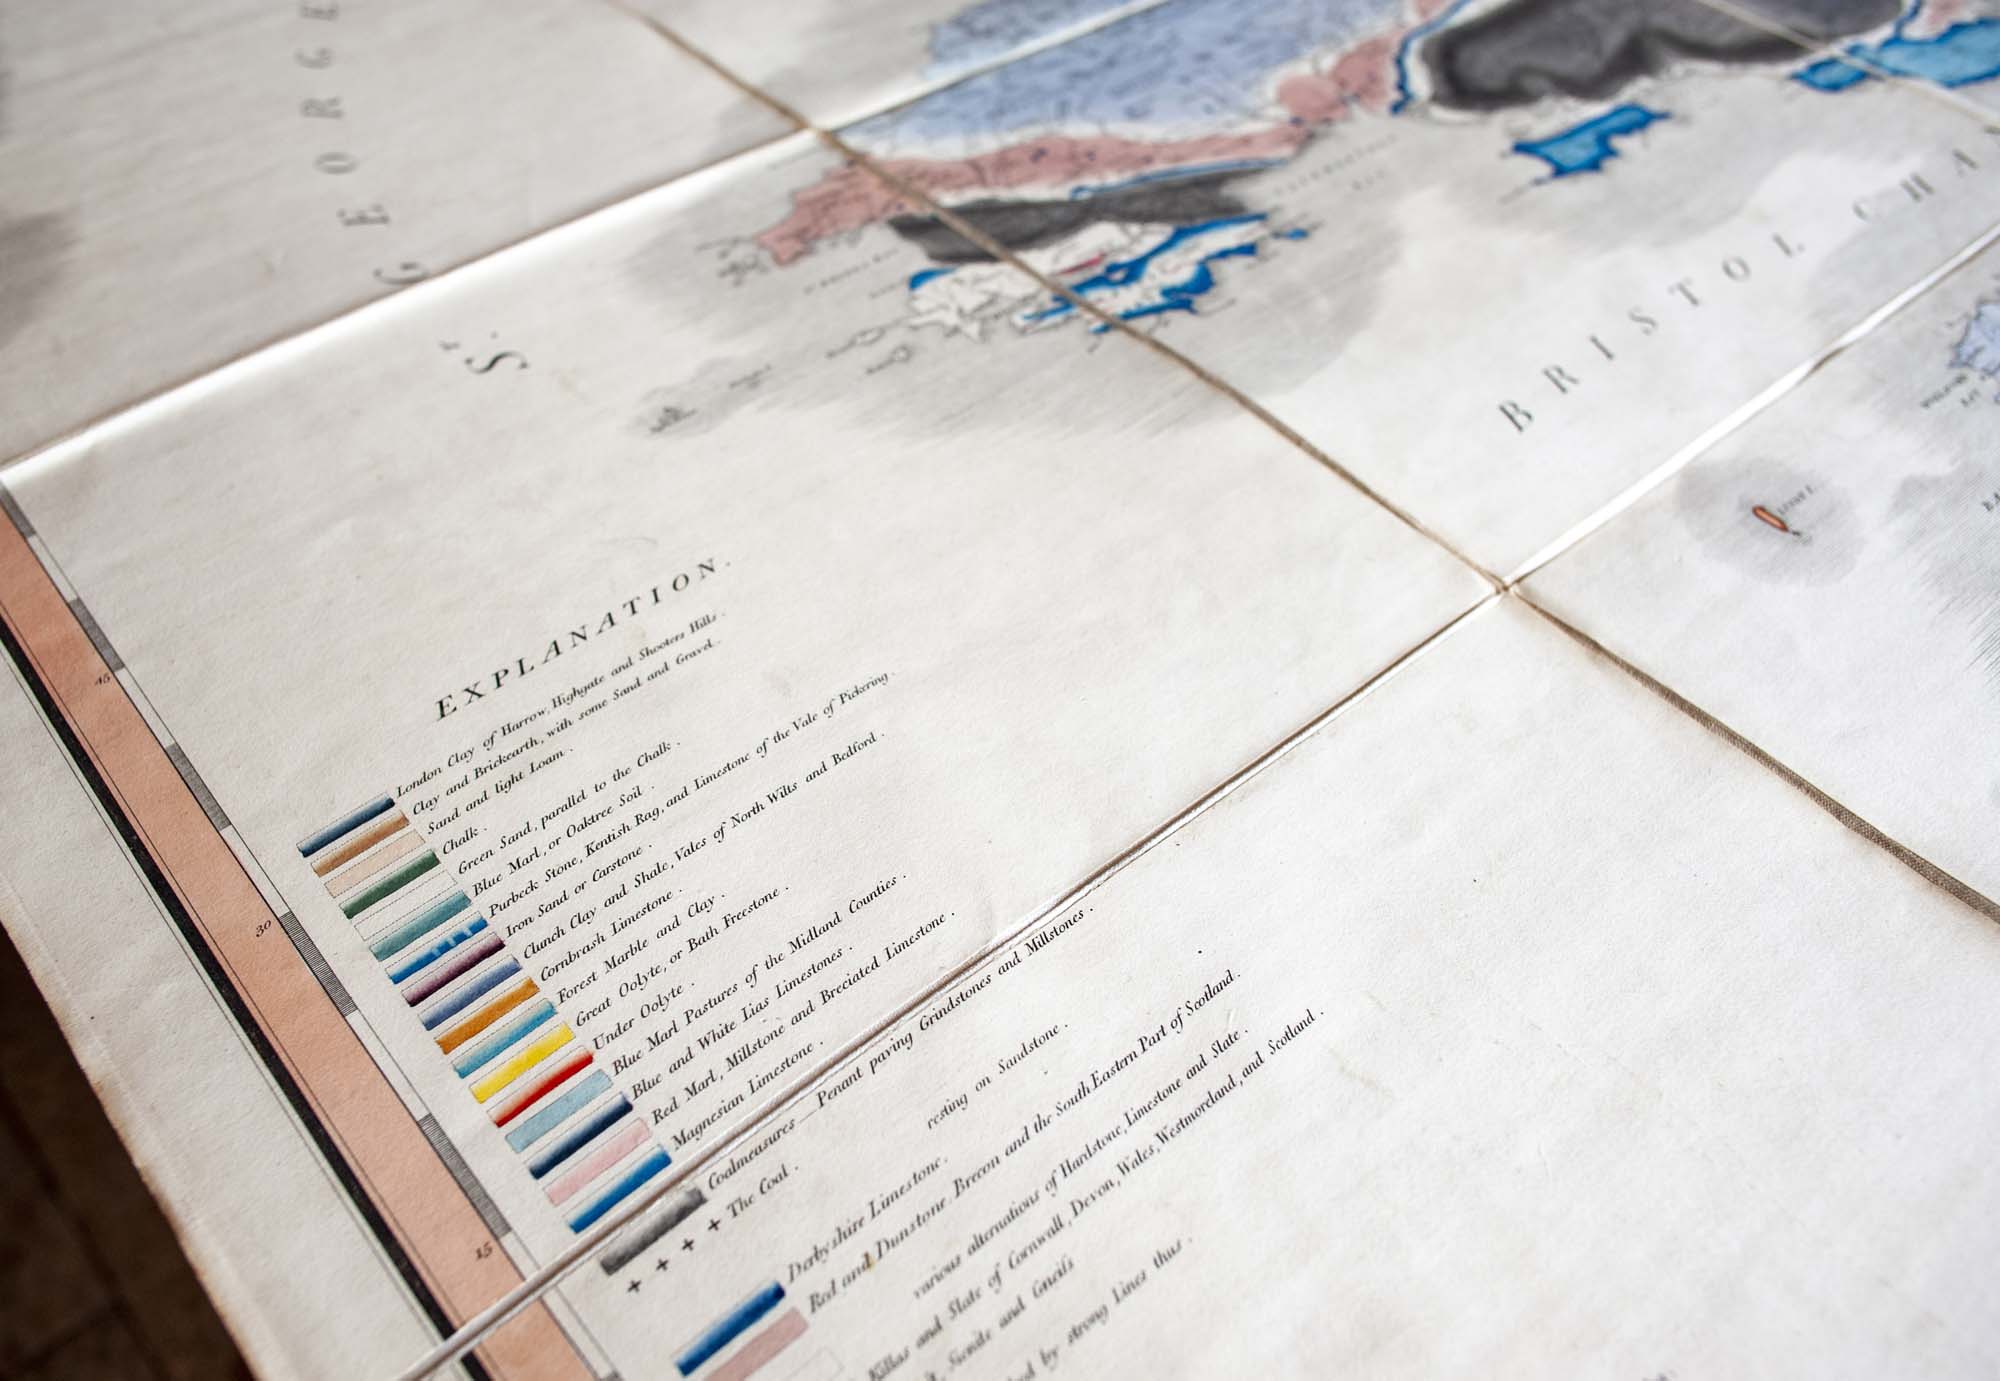 G E O R G E
S.T
BRISTOL CHA
EXPLANATION.
London Clay of Harrow, Highgate and Shooters Hills.
Clay and Brickearth, with some Sand and Gravel.
Sand and light Loam.
Chalk.
Green Sand, parallel to the Chalk.
Blue Marl, or Oaktree Soil.
Purbeck Stone, Kentish Rag, and Limestone of the Vale of Pickering.
Iron Sand or Carstone.
Clunch Clay and Shale, Vales of North Wilts and Bedford.
Cornbrash Limestone.
Forest Marble and Clay.
Great Oolyte, or Bath Freestone.
Under Oolyte.
Blue Marl Pastures of the Midland Counties.
Blue and White Lias Limestones.
Red Marl, Millstone and Breciated Limestone.
Magnesian Limestone.
Coalmeasures — Penant paving Grindstones and Millstones.
+ + + + The Coal.
resting on Sandstone.
Derbyshire Limestone.
Red and Dunstone Brecon and the South Eastern Part of Scotland.
various alternations of Hardstone, Limestone and Slate.
Killas and Slate of Cornwall, Devon, Wales, Westmoreland, and Scotland.
Sienite and Gneiſs
by strong Lines thus.
45
30
15